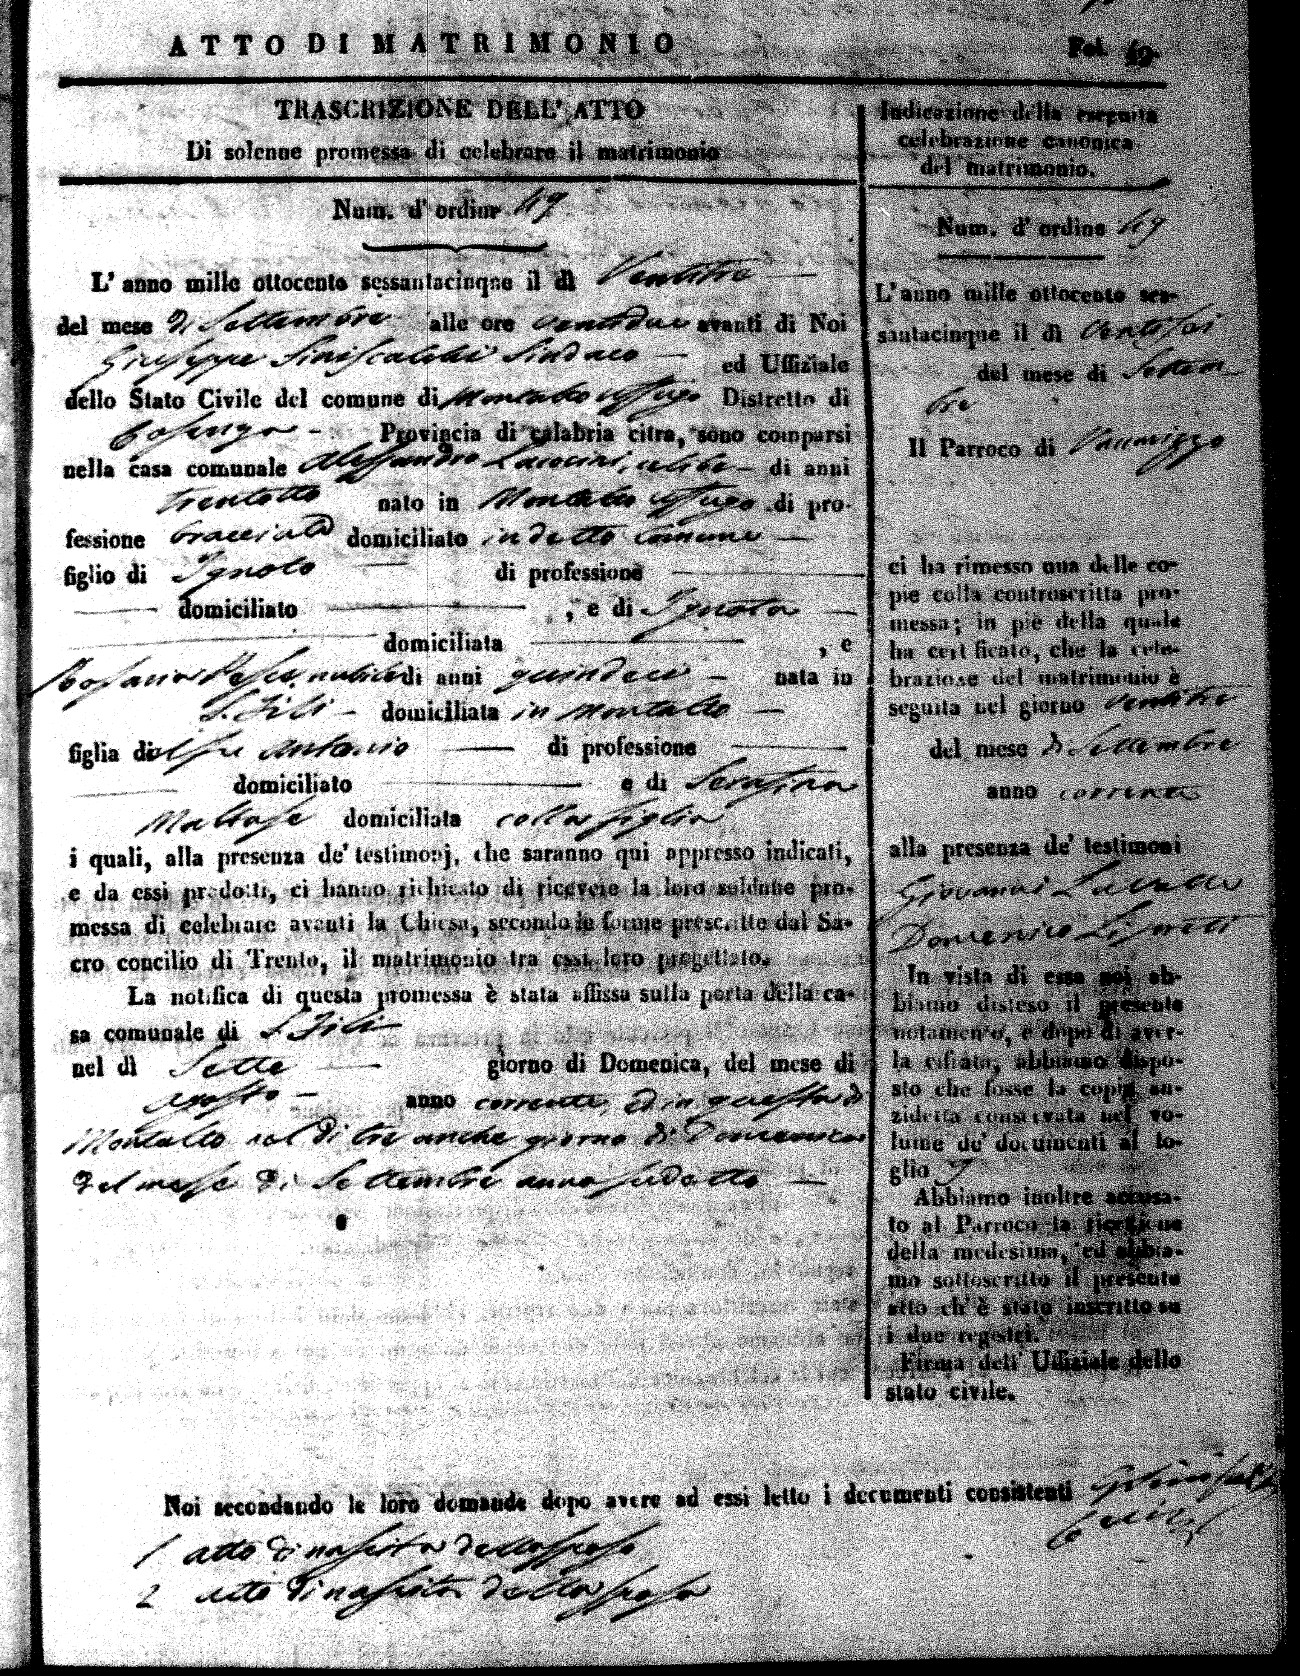 ATTO DI MATRIMONIO Fol. 49
TRASCRIZIONE DELL' ATTO
Di solenne promessa di celebrare il matrimonio
Num. d' ordine 49
L' anno mille ottocento sessantacinque il dì Ventitre
del mese di Settembre alle ore ventidue avanti di Noi
Giuseppe Siniscalchi Sindaco ed Uffiziale
dello Stato Civile del comune di Montalto Uffugo Distretto di
Cosenza Provincia di calabria citra, sono comparsi
nella casa comunale Alessandro celibe di anni
trentotto nato in Montalto Uffugo di pro-
fessione bracciale domiciliato in detto Comune
figlio di Ignoto di professione
domiciliato , e di Ignota
domiciliata , e
nubile di anni quindeci nata in
S. Fili domiciliata in Montalto
figlia di Antonio di professione
domiciliato e di Serafina
domiciliata colla figlia
i quali, alla presenza de' testimonj, che saranno qui appresso indicati,
e da essi prodotti, ci hanno richiesto di ricevere la loro solenne pro-
messa di celebrare avanti la Chiesa, secondo le forme prescritte dal Sa-
cro concilio di Trento, il matrimonio tra essi loro progettato.
La notifica di questa promessa è stata affissa sulla porta della ca-
sa comunale di S. Fili
nel dì Sette giorno di Domenica, del mese di
agosto anno corrente, ed in questa di
Montalto nel dì tre anche giorno di Domenica
del mese di Settembre anno sudetto
Indicazione della eseguita
celebrazione canonica
del matrimonio.
Num. d' ordine 49
L' anno mille ottocento ses-
santacinque il dì ventisei
del mese di Settem
bre
Il Parroco di Vaccarizzo
ci ha rimesso una delle co-
pie colla controscritta pro-
messa; in piè della quale
ha certificato, che la cele-
brazione del matrimonio è
seguita nel giorno ventitre
del mese di Settembre
anno corrente
alla presenza de' testimoni
Giovanni
Domenico
In vista di essa noi ab-
biamo disteso il presente
notamento, e dopo di aver-
la cifrata, abbiamo dispo-
sto che fosse la copia an-
zidetta conservata nel vo-
lume de' documenti al fo-
glio
Abbiamo inoltre accusa-
to al Parroco la ricezione
della medesima, ed abbia-
mo sottoscritto il presente
atto ch' è stato inscritto su
i due registri.
Firma dell' Uffiziale dello
stato civile.
Noi secondando le loro domande dopo avere ad essi letto i documenti consistenti
1 atto di nascita dello sposo
2 atto di nascita della sposa